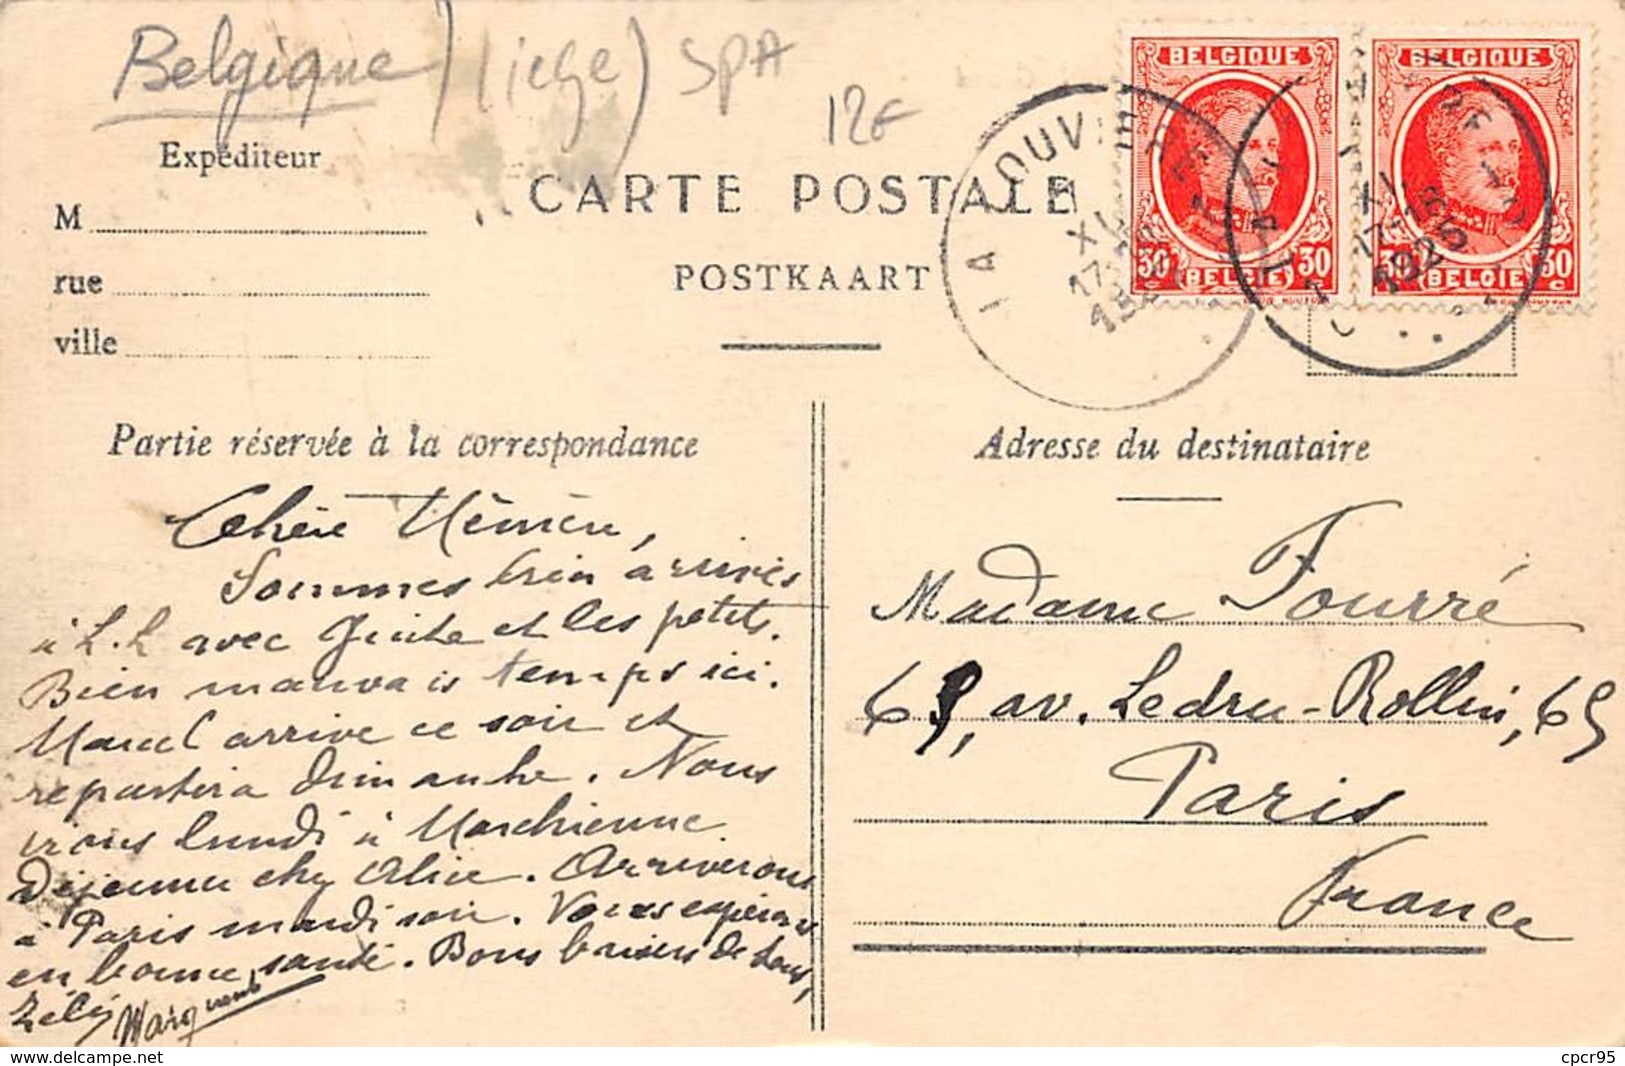 Belgique) (iege) SPA
12€
BELGIQUE
30 30
BELGIE
BELGIQUE
30 30
BELGIE
Expéditeur
M
rue
ville
CARTE POSTALE
POSTKAART
LA LOUV
XI
17
1925
Partie réservée à la correspondance
Adresse du destinataire
Chère Mémère,
Sommes bien arrivés
à L.L avec Guite et les petits.
Bien mauvais temps ici.
Marcel arrive ce soir et
repartira dimanche. Nous
irons lundi à Marchienne
Déjeuner chez Alice. Arriverons
à Paris mardi soir. Vous espérons
en bonne santé. Bons baisers de tous,
Madame Fourré
65, av. Ledru-Rollin, 65
Paris
France
cpcr95